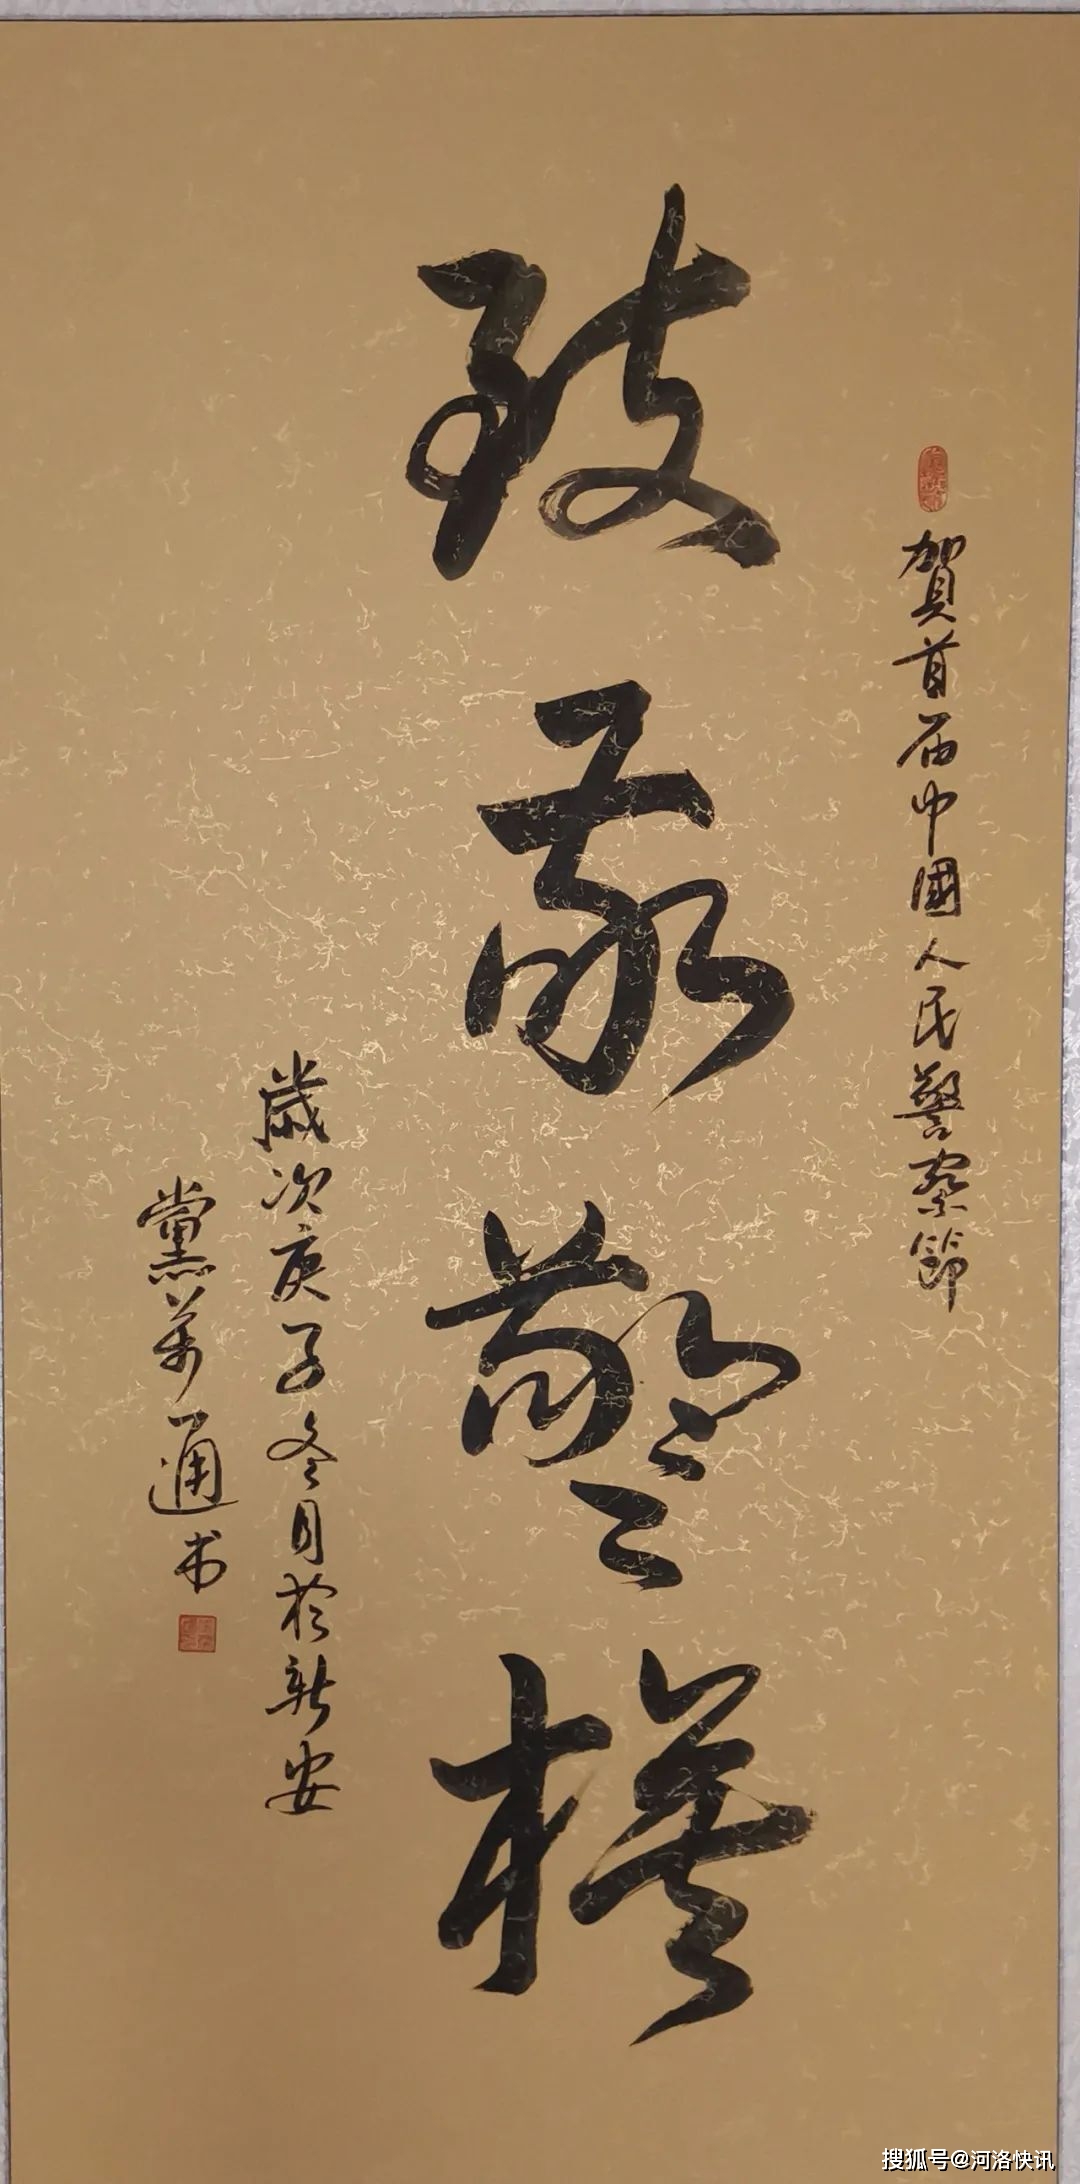 賀首届中國人民警察節
致敬警模
歲次庚子冬月於新安
黨萬通书
搜狐号@河洛快讯